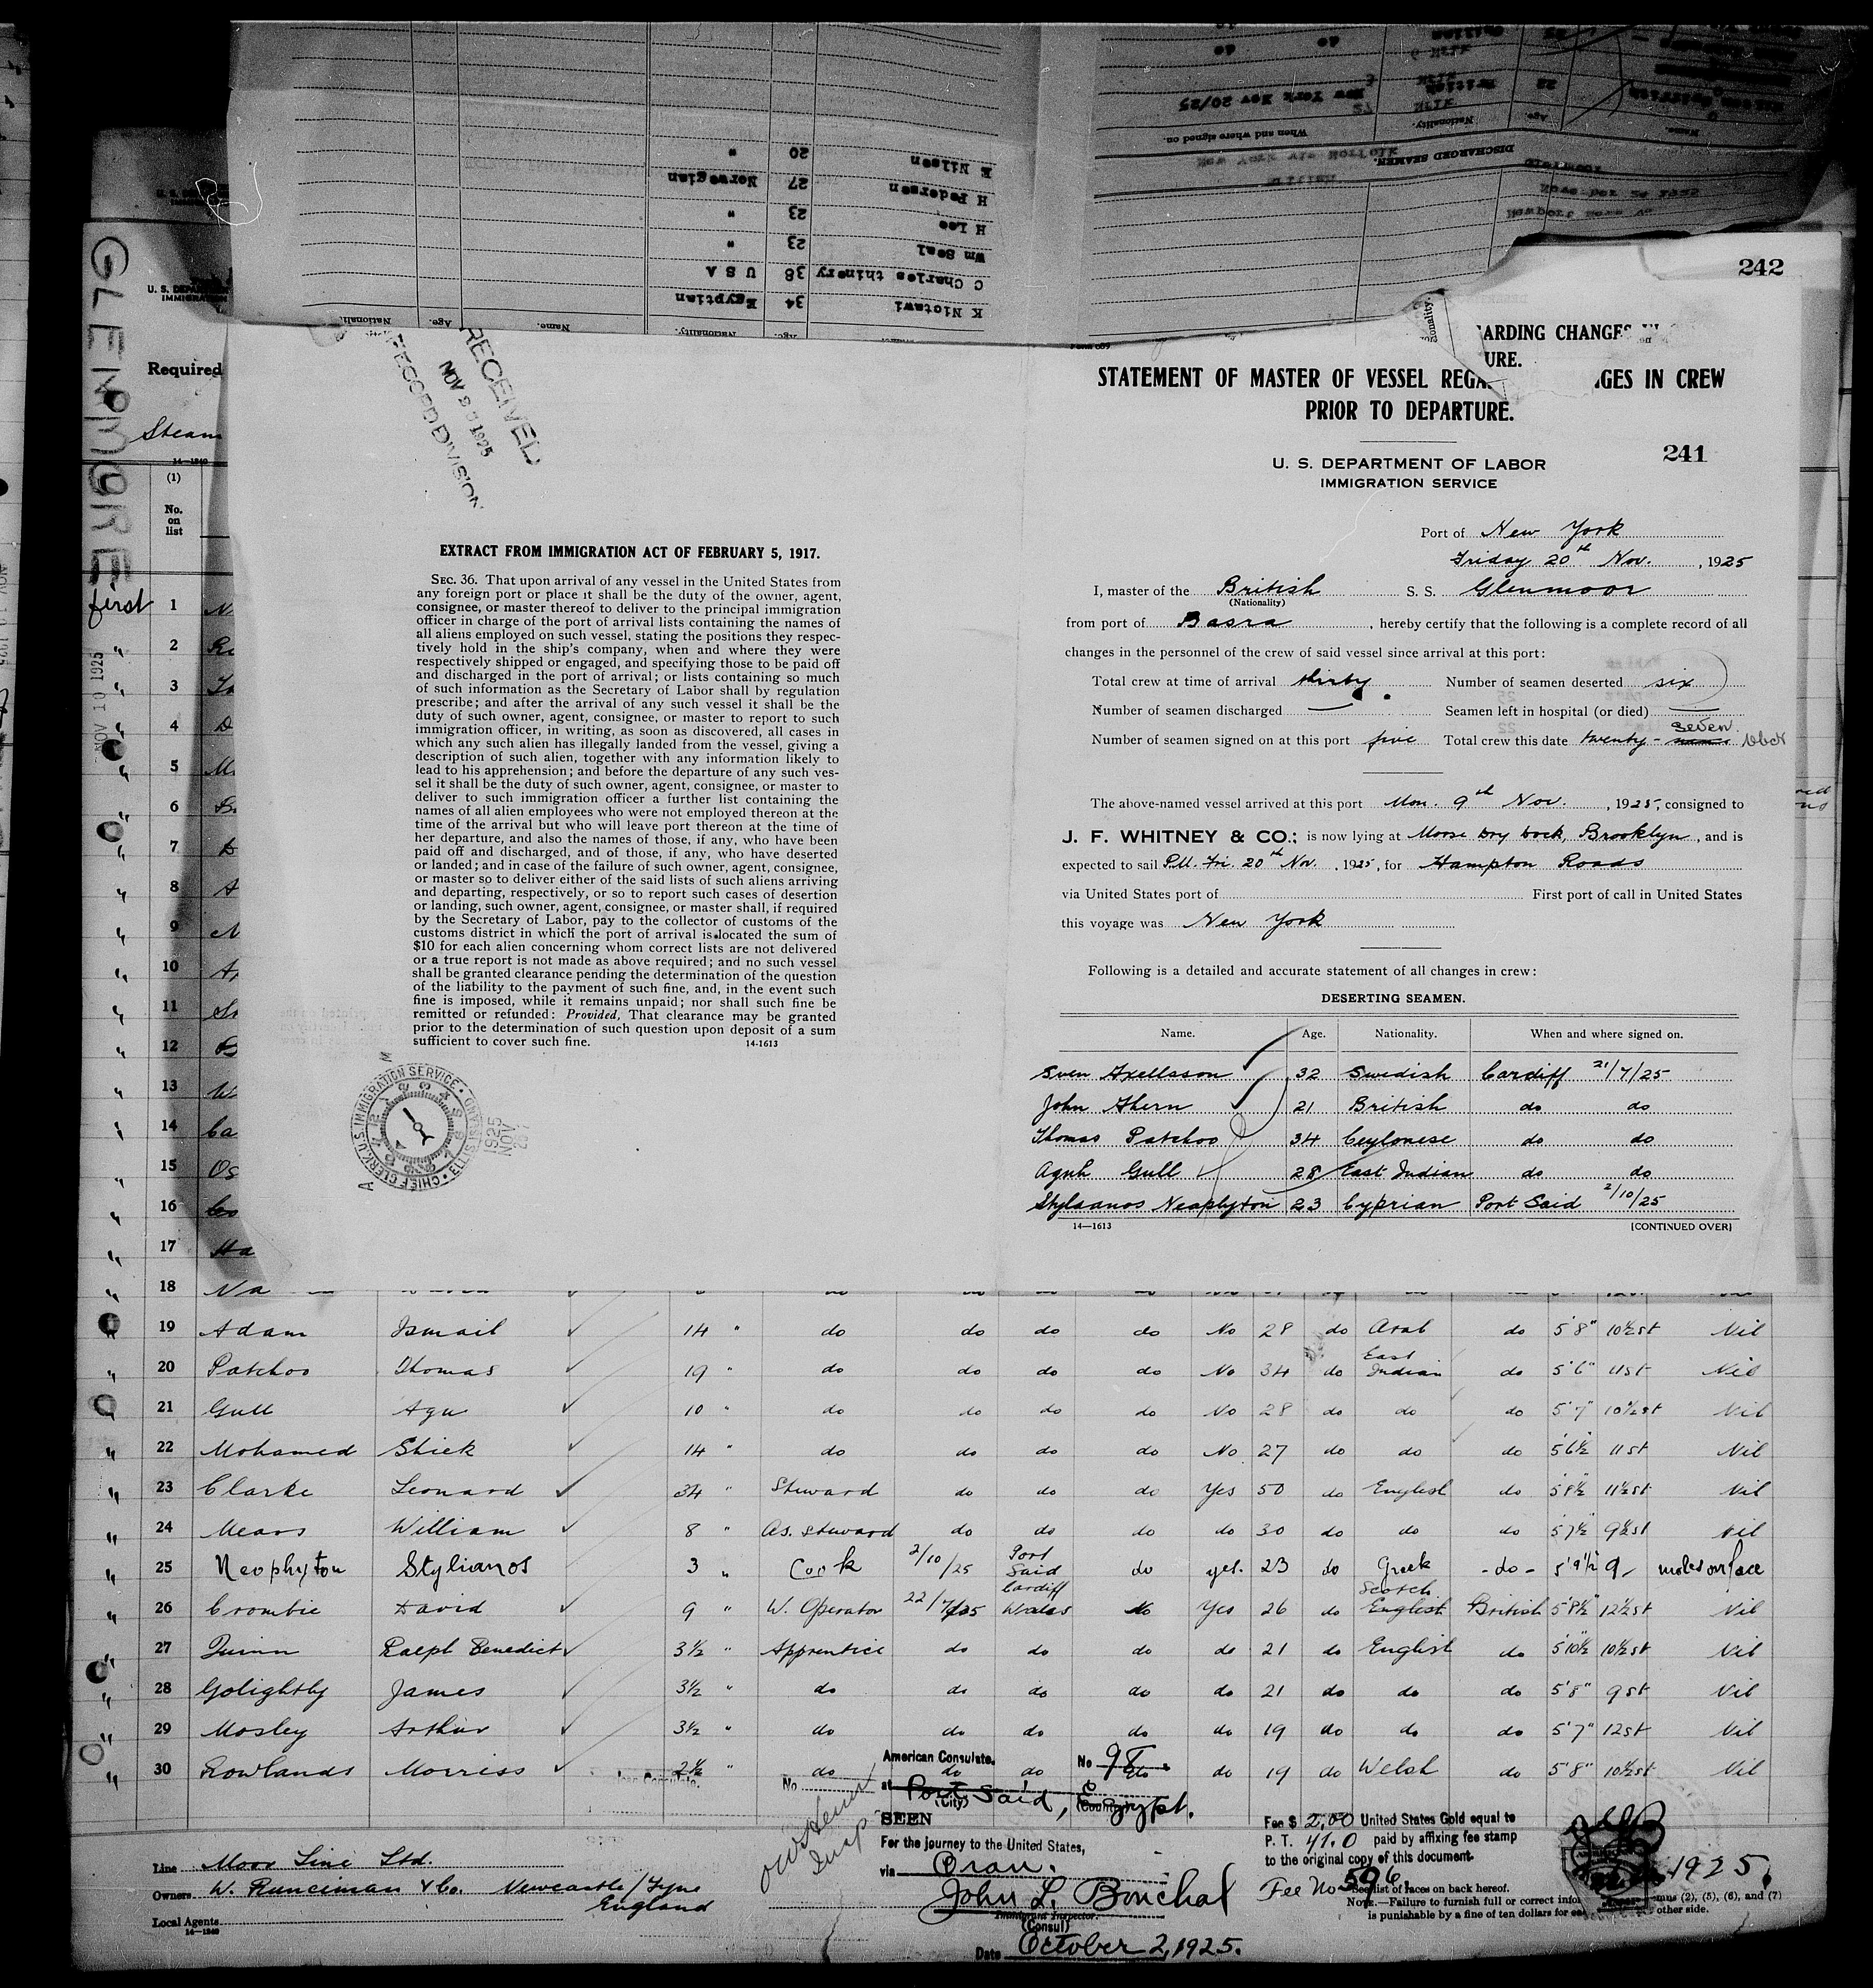 242
241
GLENMORE
U. S. DEPA
IMMIGRATION
Required
Steam
14—1240
(1)
No.
on
list
NOV 10 1925
K Niotawi 34 Egyptian
C Charles thinery 38 U S A
Wm Seal 23 "
H Lee 23 "
H Pedersen 27 Norwegian
E Nilsen 20 "
Name. Age. Nationality. When and where signed on.
DISCHARGED SEAMEN.
New York Nov 20/25
RECEIVED
NOV 1925
RECORD DIVISION
EXTRACT FROM IMMIGRATION ACT OF FEBRUARY 5, 1917.
SEC. 36. That upon arrival of any vessel in the United States from
any foreign port or place it shall be the duty of the owner, agent,
consignee, or master thereof to deliver to the principal immigration
officer in charge of the port of arrival lists containing the names of
all aliens employed on such vessel, stating the positions they respec-
tively hold in the ship's company, when and where they were
respectively shipped or engaged, and specifying those to be paid off
and discharged in the port of arrival; or lists containing so much
of such information as the Secretary of Labor shall by regulation
prescribe; and after the arrival of any such vessel it shall be the
duty of such owner, agent, consignee, or master to report to such
immigration officer, in writing, as soon as discovered, all cases in
which any such alien has illegally landed from the vessel, giving a
description of such alien, together with any information likely to
lead to his apprehension; and before the departure of any such ves-
sel it shall be the duty of such owner, agent, consignee, or master to
deliver to such immigration officer a further list containing the
names of all alien employees who were not employed thereon at the
time of the arrival but who will leave port thereon at the time of
her departure, and also the names of those, if any, who have been
paid off and discharged, and of those, if any, who have deserted
or landed; and in case of the failure of such owner, agent, consignee,
or master so to deliver either of the said lists of such aliens arriving
and departing, respectively, or so to report such cases of desertion
or landing, such owner, agent, consignee, or master shall, if required
by the Secretary of Labor, pay to the collector of customs of the
customs district in which the port of arrival is located the sum of
$10 for each alien concerning whom correct lists are not delivered
or a true report is not made as above required; and no such vessel
shall be granted clearance pending the determination of the question
of the liability to the payment of such fine, and, in the event such
fine is imposed, while it remains unpaid; nor shall such fine be
remitted or refunded: Provided, That clearance may be granted
prior to the determination of such question upon deposit of a sum
sufficient to cover such fine. 14-1613
CHIEF CLERK U.S. IMMIGRATION SERVICE • ELLIS ISLAND
1925
NOV
ARDING CHANGES
URE.
STATEMENT OF MASTER OF VESSEL REGA NGES IN CREW
PRIOR TO DEPARTURE.
U. S. DEPARTMENT OF LABOR
IMMIGRATION SERVICE
Port of New York
Friday 20th Nov. , 1925
I, master of the British S. S. Glenmoor
(Nationality)
from port of Basra , hereby certify that the following is a complete record of all
changes in the personnel of the crew of said vessel since arrival at this port:
Total crew at time of arrival thirty Number of seamen deserted six
Number of seamen discharged — Seamen left in hospital (or died) —
Number of seamen signed on at this port five Total crew this date twenty - seven
The above-named vessel arrived at this port Mon. 9th Nov. , 1925, consigned to
J. F. WHITNEY & CO.; is now lying at Morse Dry Dock, Brooklyn , and is
expected to sail P.M. Fri. 20th Nov. , 1925, for Hampton Roads
via United States port of First port of call in United States
this voyage was New York
Following is a detailed and accurate statement of all changes in crew:
DESERTING SEAMEN.
Name. Age. Nationality. When and where signed on.
Sven Axellsson 32 Swedish Cardiff 21/7/25
John Ahern 21 British do do
Thomas Patchoo 34 Ceylonese do do
Aguh Gull 28 East Indian do do
Stylsanos Neophyton 23 Cyprian Port Said 2/10/25
14—1613 [CONTINUED OVER]
first 1
" 2
" 3
" 4
" 5
" 6
" 7
" 8
" 9
" 10
" 11
" 12
" 13
" 14 Ca
" 15 Os
" 16 Co
" 17 Ha
" 18 Na
" 19 Adam Ismail 14 " do do do do No 28 do Arab do 5'8" 10½st Nil
" 20 Patchoo Thomas 19 " do do do do No 34 do East Indian do 5'6" 11st Nil
" 21 Gull Agu 10 " do do do do No 28 do do do 5'7" 10½st Nil
" 22 Mohamed Shiek 14 " do do do do No 27 do do do 5'6½ 11st Nil
" 23 Clarke Leonard 34 " Steward do do do Yes 50 do English do 5'8½ 11½st Nil
" 24 Mears William 8 " As. Steward do do do do 30 do do do 5'7½ 9½st Nil
" 25 Neophyton Stylianos 3 " Cook 2/10/25 Port Said do yes. 23 do Greek - do - 5'9½ 9- moles on face
" 26 Crombie David 9 " W. Operator 22/7/25 Cardiff Wales No Yes 26 do Scotch English British 5'8½ 12½st Nil
" 27 Quinn Ralph Benedict 3½ " Apprentice do do do do 21 do English do 5'10½ 10½st Nil
" 28 Golightly James 3½ " do do do do do 21 do do do 5'8" 9st Nil
" 29 Mosley Arthur 3½ " do do do do do 19 do do do 5'7" 12st Nil
" 30 Rowlands Morriss 2½ " do do do do do 19 do Welsh do 5'8" 10½st Nil
American Consulate. No 98
at Port Said, Egypt.
(City) (Country)
SEEN
For the journey to the United States,
via Oran.
John L. Bouchal
Immigrant Inspector.
(Consul)
Date October 2, 1925.
Fee $ 2.00 United States Gold equal to
P. T. 41.0 paid by affixing fee stamp
to the original copy of this document.
Fee No 596.
See list of races on back hereof.
NOTE.—Failure to furnish full or correct infor mns (2), (5), (6), and (7)
is punishable by a fine of ten dollars for ea other side.
1925.
Line Moor Line Ltd.
Owners W. Runciman & Co. Newcastle/Tyne
England
Local Agents
14—1240